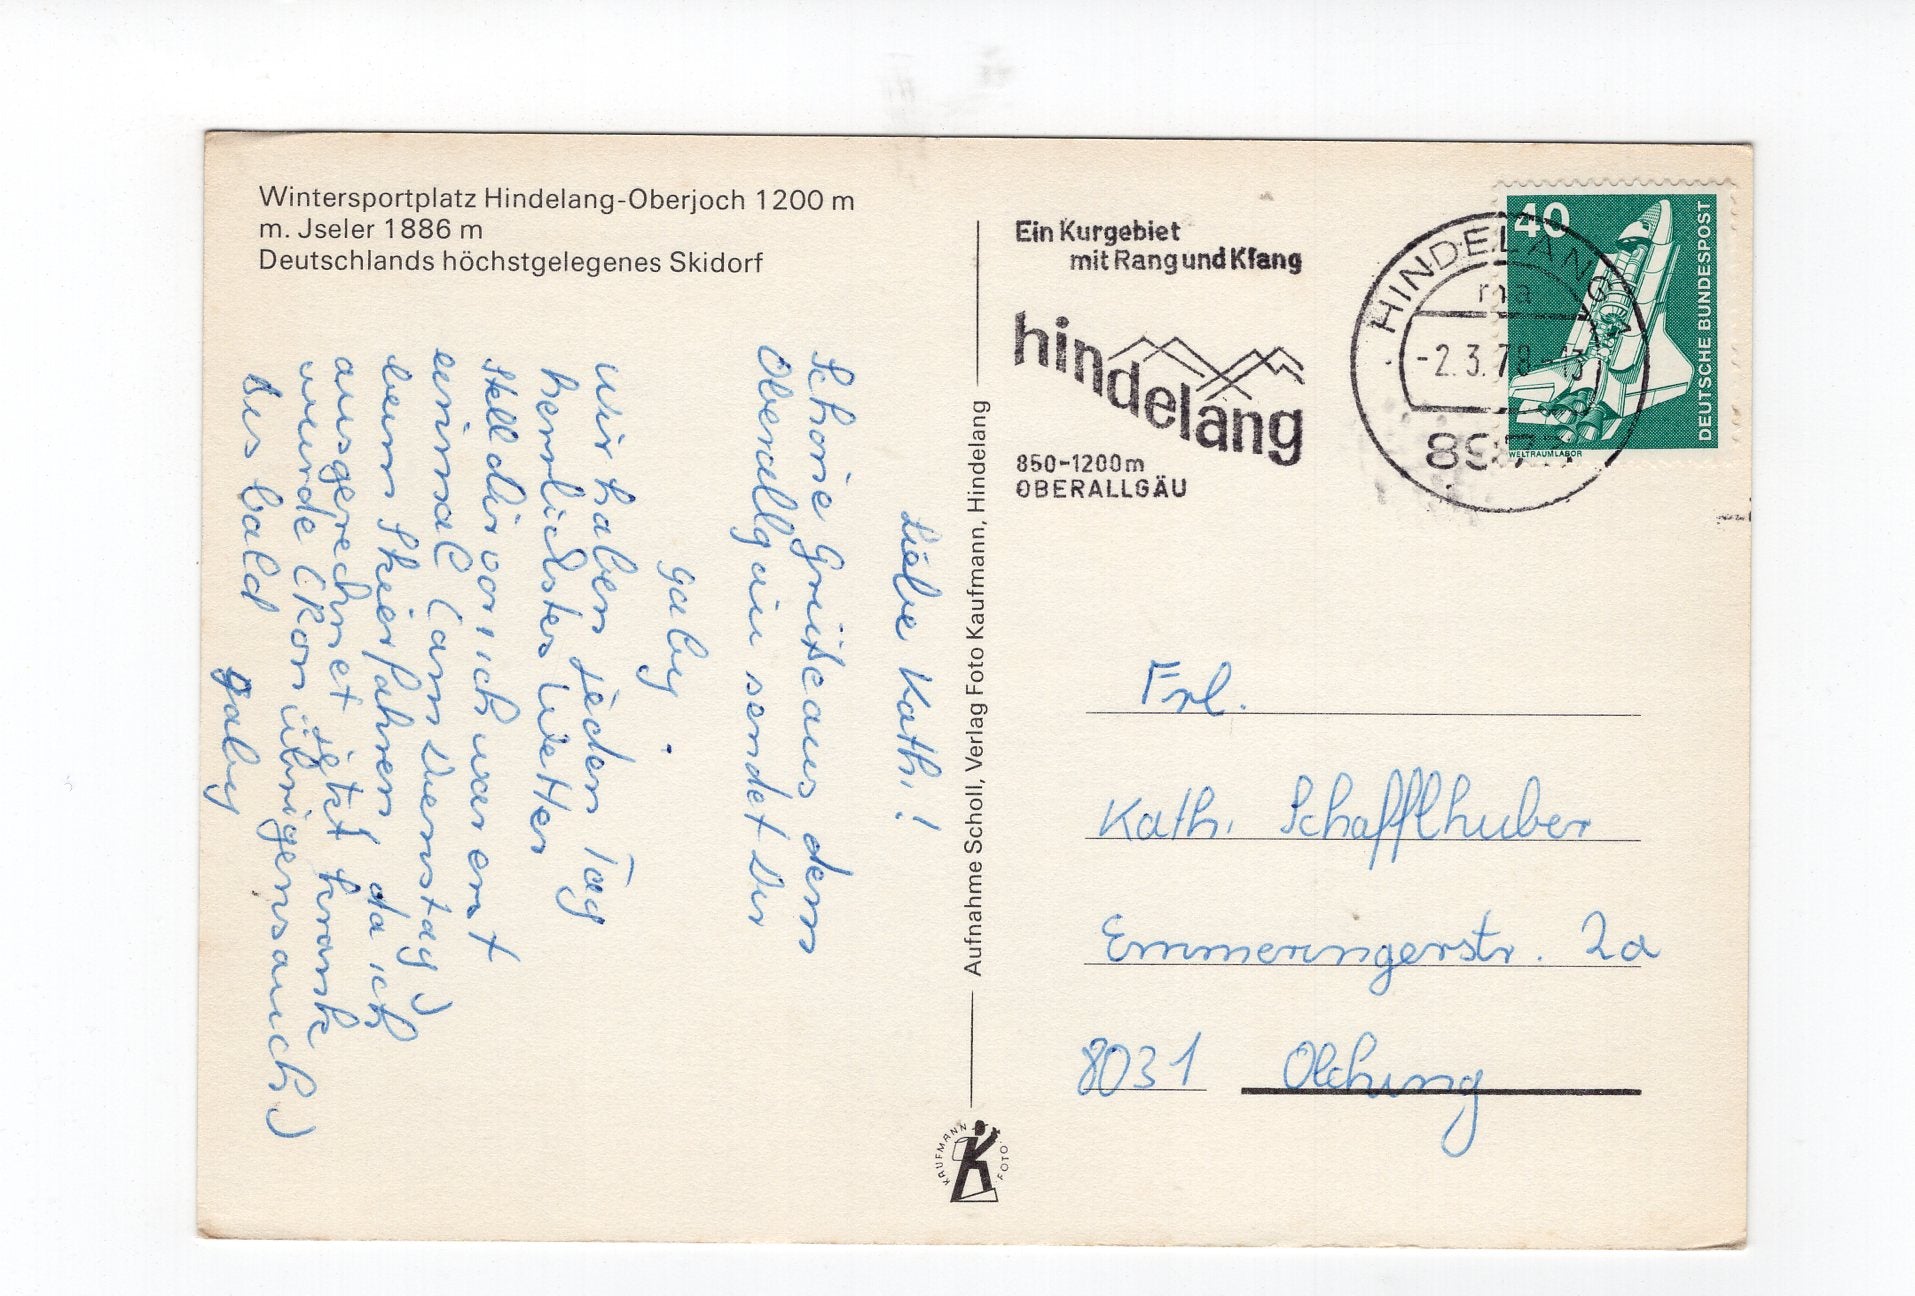 Wintersportplatz Hindelang-Oberjoch 1200 m
m. Jseler 1886 m
Deutschlands höchstgelegenes Skidorf
Liebe Kathi!
Schöne Grüße aus dem
Oberallgäu sendet Dir
Gaby.
Wir haben jeden Tag
herrlichstes Wetter
Stell dir vor ich war erst
einmal (am Dienstag)
beim Skierfahren da ich
ausgerechnet jetzt krank
wurde (Kon übrigens auch)
Bis bald
Gaby
Aufnahme Scholl, Verlag Foto Kaufmann, Hindelang
KAUFMANN FOTO
Ein Kurgebiet
mit Rang und Klang
hindelang
850-1200m
OBERALLGÄU
HINDELANG
ma
-2.3.78-13
8973
40
DEUTSCHE BUNDESPOST
WELTRAUMLABOR
Frl.
Kathi Schafflhuber
Emmeringerstr. 2a
8031 Olching